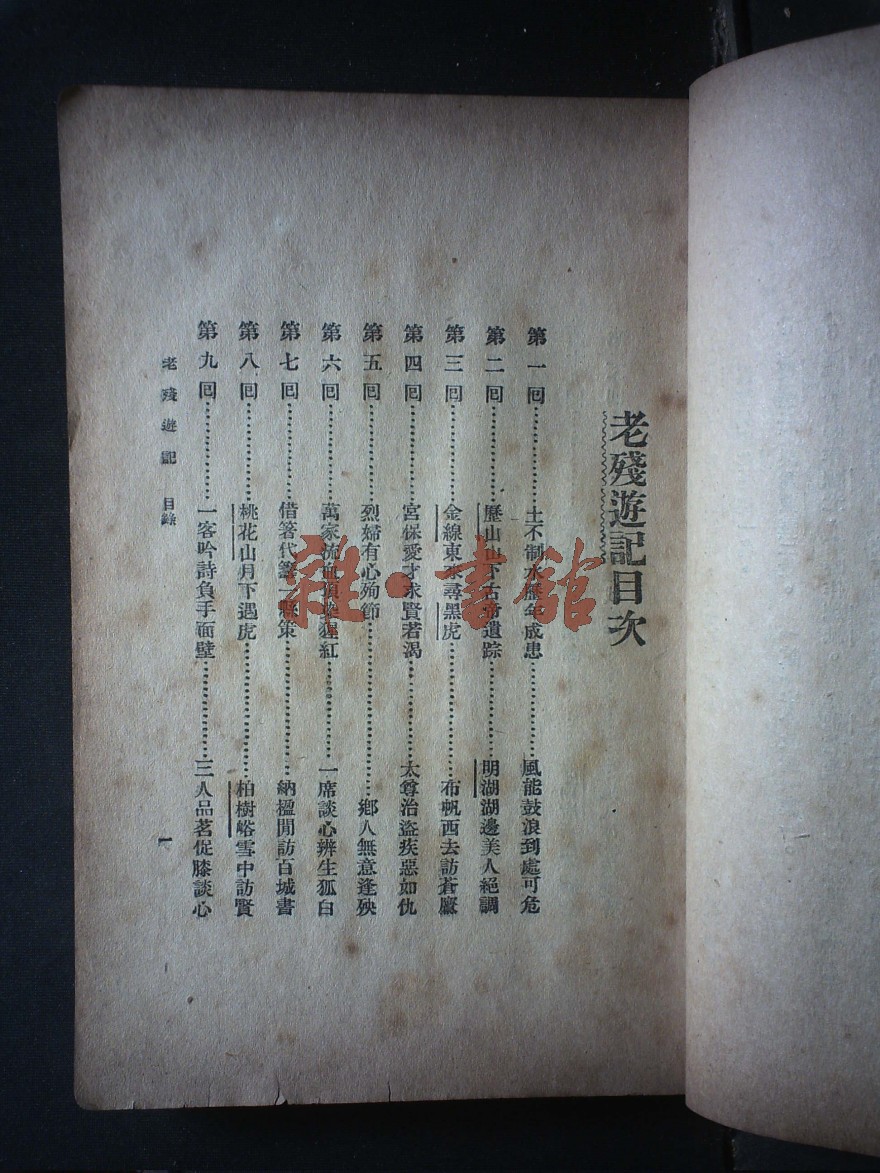 老殘遊記目次
第一回………土不制水歷年成患………風能鼓浪到處可危
第二回………歷山山下古帝遺踪………明湖湖邊美人絕調
第三回………金線東來尋黑虎………布帆西去訪蒼鷹
第四回………宮保愛才求賢若渴………太尊治盜疾惡如仇
第五回………烈婦有心殉節………鄉人無意逢殃
第六回………萬家流血頂染猩紅………一席談心辨生狐白
第七回………借箸代籌一縣策………納楹閒訪百城書
第八回………桃花山月下遇虎………柏樹峪雪中訪賢
第九回………一客吟詩負手面壁………三人品茗促膝談心
老殘遊記 目錄
一
雜·書館